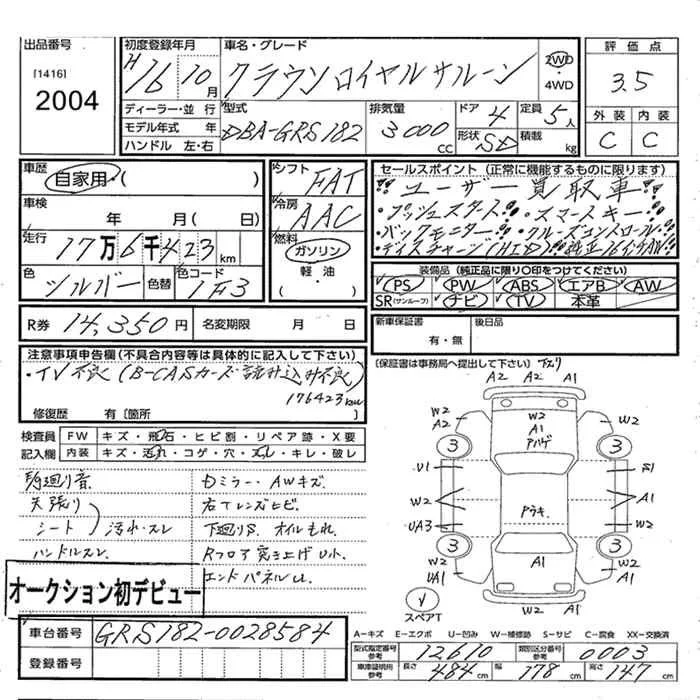 出品番号
[1416]
2004
初度登録年月
H16 10月
車名・グレード
クラウン ロイヤルサルーン
2WD
・
4WD
評価点
3.5
外装 内装
C C
ディーラー・並行
モデル年式 年
ハンドル 左・右
型式
DBA-GRS182
排気量
3000 CC
ドア 4
形状 SD
定員 5人
積載 kg
車歴
自家用・( )
車検
年 月( 日)
走行
17万6千423km
色
シルバー
色替
色コード
1F3
シフト
FAT
冷房
AAC
燃料
ガソリン
軽・油
・( )
セールスポイント (正常に機能するものに限ります)
!! ユーザー買取車 !!
・プッシュスタート!! ・スマートキー!!
・バックモニター!! ・クルーズコントロール!!
・ディスチャージ(HID)!! ・純正16インチAW!!
装備品(純正品に限り○印をつけてください)
PS PW ABS エアB AW
SR(サンルーフ) ナビ TV 本革
R券 14,350円
名変期限 月 日
新車保証書
有・無
後日品
(保証書は事務局へ提出して下さい)
注意事項申告欄(不具合内容等は具体的に記入して下さい)
・TV不良(B-CASカード読み込み不良)
176423km
修復歴 有〔箇所 〕
検査員
記入欄
FW キズ・飛石・ヒビ割・リペア跡・X要
内装 キズ・汚れ・コゲ・穴・スレ・キレ・破レ
足廻り音
天張り
シート 汚れ・スレ
ハンドルスレ
Dミラー・AWキズ
右テレンズヒビ
下廻りS オイルもれ
Rフロア突き上げU小
エンドパネルU
オークション初デビュー
A2 A2 A1
W2 A2
W2
A1
アハゲ
W2
3 3
U1
W2
UA3
UA1
Aラキ
A1
W2
3 3
A1
W2
A1
スペアT
A-キズ E-エクボ U-凹み W-補修跡 S-サビ C-腐食 XX-交換済
車台番号
GRS182-0028584
登録番号
型式指定番号 参考 12610
類別区分番号 参考 0003
車車証明用 参考 長さ 484cm 幅 178cm 高さ 147cm